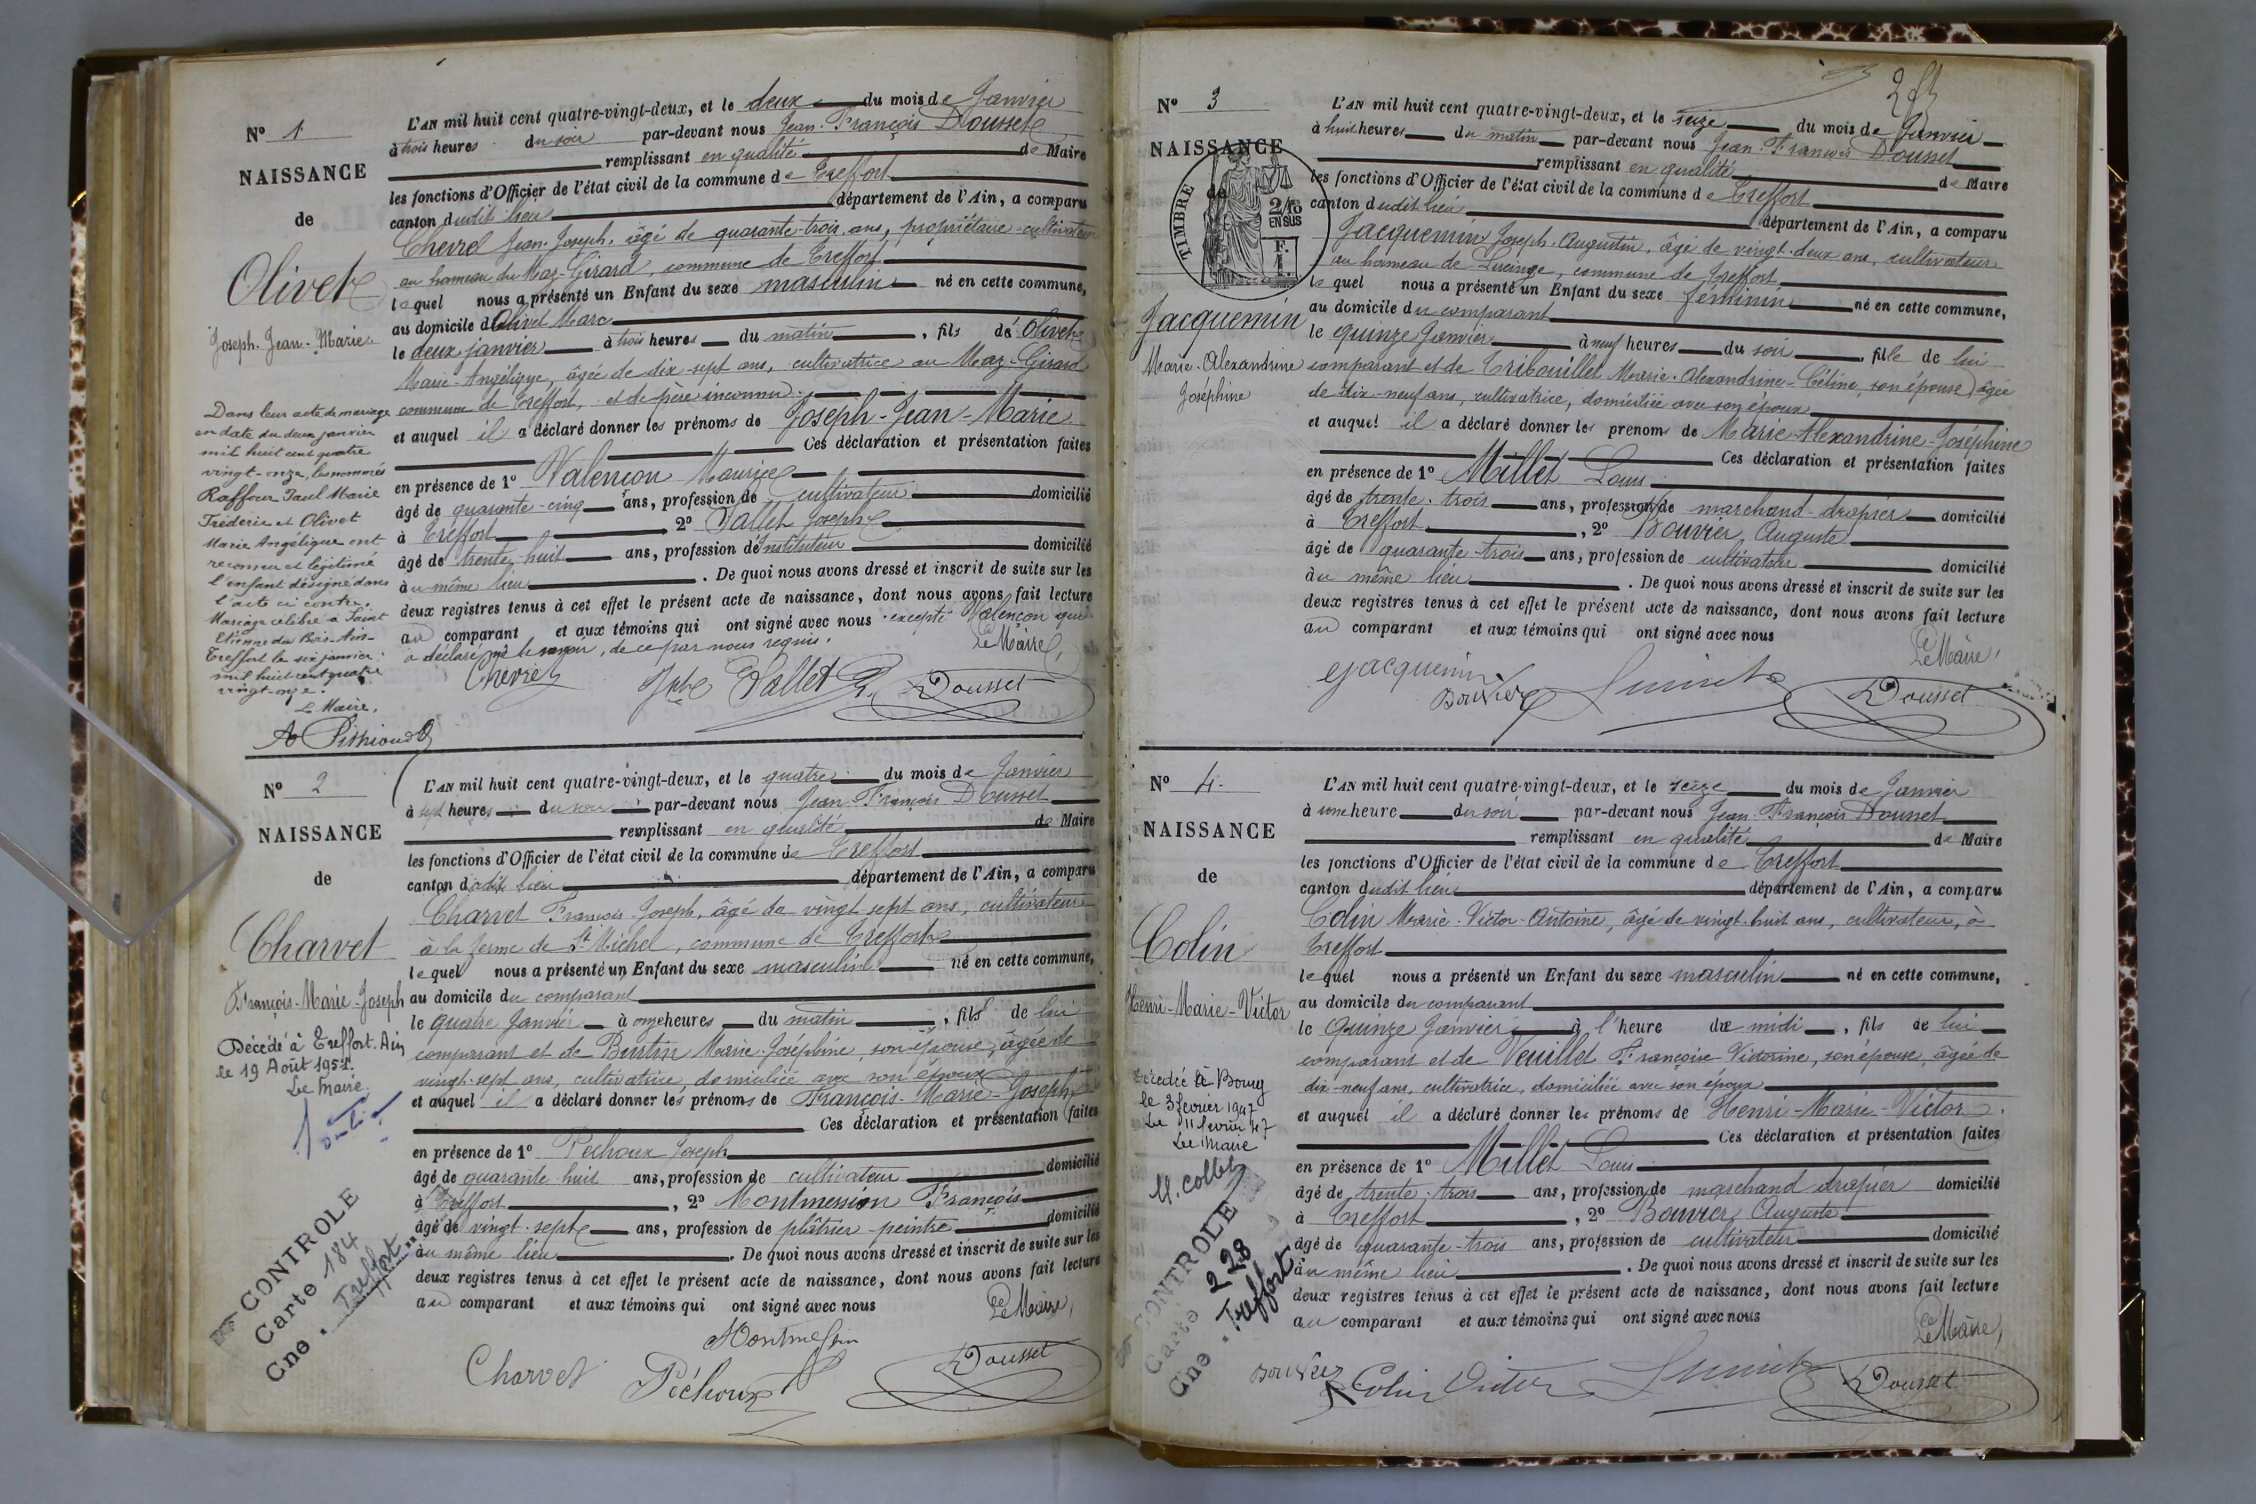 N° 1
NAISSANCE
de
Olivet
Joseph-Jean-Marie
Dans leur acte de mariage
en date du deux janvier
mil huit cent quatre
vingt-onze, les nommés
Raffour Paul Marie
Fréderic et Olivet
Marie Angélique ont
reconnu et légitimé
l'enfant désigné dans
l'acte ci contre.
Mariage célébré à Saint
Etienne du Bois-Ain-
Treffort le six janvier
mil huit cent quatre
vingt-onze.
Le Maire,
L'AN mil huit cent quatre-vingt-deux, et le deux du mois de Janvier
à trois heures du soir par-devant nous Jean-François Dousset
remplissant en qualité de Maire
les fonctions d'Officier de l'état civil de la commune de Treffort
canton dudit lieu département de l'Ain, a comparu
Chevrel Jean-Joseph, âgé de quarante-trois ans, propriétaire-cultivateur
au hameau du Maz-Girard, commune de Treffort
lequel nous a présenté un Enfant du sexe masculin né en cette commune,
au domicile d'Olivet Marc
le deux janvier à trois heures du matin, fils de Olivet
Marie-Angélique, âgée de dix-sept ans, cultivatrice au Maz-Girard
commune de Treffort, et de père inconnu;
et auquel il a déclaré donner les prénoms de Joseph-Jean-Marie
Ces déclaration et présentation faites
en présence de 1° Valençon Maurice
âgé de quarante-cinq ans, profession de cultivateur domicilié
à Treffort 2° Vallet Joseph
âgé de trente-huit ans, profession de Instituteur domicilié
au même lieu. De quoi nous avons dressé et inscrit de suite sur les
deux registres tenus à cet effet le présent acte de naissance, dont nous avons fait lecture
au comparant et aux témoins qui ont signé avec nous excepté Valençon qui
a déclaré ne le savoir, de ce par nous requis.
Le Maire,
Chevrel Vallet Dousset
N° 2
NAISSANCE
de
Charvet
François-Marie-Joseph
Décédé à Treffort. Ain
le 19 Août 1951.
Le Maire
CONTROLE
Carte 184
Cne. Treffort
L'AN mil huit cent quatre-vingt-deux, et le quatre du mois de Janvier
à sept heures du soir par-devant nous Jean François Dousset
remplissant en qualité de Maire
les fonctions d'Officier de l'état civil de la commune de Treffort
canton dudit lieu département de l'Ain, a comparu
Charvet François-Joseph, âgé de vingt-sept ans, cultivateur
à la ferme de St Michel, commune de Treffort
lequel nous a présenté un Enfant du sexe masculin né en cette commune,
au domicile du comparant
le quatre Janvier à onze heures du matin, fils de lui
comparant et de Burtin Marie-Joséphine, son épouse, âgée de
vingt-sept ans, cultivatrice, domiciliée avec son époux
et auquel il a déclaré donner les prénoms de François-Marie-Joseph
Ces déclaration et présentation faites
en présence de 1° Pechoux Joseph
âgé de quarante huit ans, profession de cultivateur domicilié
à Treffort, 2° Montmession François
âgé de vingt-sept ans, profession de plâtrier peintre domicilié
au même lieu. De quoi nous avons dressé et inscrit de suite sur les
deux registres tenus à cet effet le présent acte de naissance, dont nous avons fait lecture
au comparant et aux témoins qui ont signé avec nous
Le Maire,
Charvet Péchoux Dousset
N° 3
NAISSANCE
de
TIMBRE
2/10
EN SUS
Jacquemin
Marie-Alexandrine
Joséphine
L'AN mil huit cent quatre-vingt-deux, et le seize du mois de Janvier
à huit heures du matin par-devant nous Jean-François Dousset
remplissant en qualité de Maire
les fonctions d'Officier de l'état civil de la commune de Treffort
canton dudit lieu département de l'Ain, a comparu
Jacquemin Joseph-Augustin, âgé de vingt-deux ans, cultivateur
au hameau de Lucinge, commune de Treffort
lequel nous a présenté un Enfant du sexe féminin né en cette commune,
au domicile du comparant
le quinze Janvier à neuf heures du soir, fille de lui
comparant et de Tribouillet Marie-Alexandrine-Céline, son épouse, âgée
de dix-neuf ans, cultivatrice, domiciliée avec son époux
et auquel il a déclaré donner les prenoms de Marie-Alexandrine-Joséphine
Ces déclaration et présentation faites
en présence de 1° Millet Louis
âgé de trente-trois ans, profession de marchand-drapier domicilié
à Treffort, 2° Bouvier Auguste
âgé de quarante-trois ans, profession de cultivateur domicilié
au même lieu. De quoi nous avons dressé et inscrit de suite sur les
deux registres tenus à cet effet le présent acte de naissance, dont nous avons fait lecture
au comparant et aux témoins qui ont signé avec nous
Le Maire,
Jacquemin Bouvier Dousset
N° 4
NAISSANCE
de
Colin
Henri-Marie-Victor
Décédé à Bourg
le 3 février 1947
Le 11 février 47
Le Maire
M. Collet
CONTROLE
Carte 228
Cne. Treffort
L'AN mil huit cent quatre-vingt-deux, et le seize du mois de Janvier
à une heure du soir par-devant nous Jean-François Dousset
remplissant en qualité de Maire
les fonctions d'Officier de l'état civil de la commune de Treffort
canton dudit lieu département de l'Ain, a comparu
Colin Marie-Victor-Antoine, âgé de vingt-huit ans, cultivateur, à
Treffort
lequel nous a présenté un Enfant du sexe masculin né en cette commune,
au domicile du comparant
le quinze Janvier à l'heure de midi, fils de lui
comparant et de Veuillet Françoise Victorine, son épouse, âgée de
dix-neuf ans, cultivatrice, domiciliée avec son époux
et auquel il a déclaré donner les prénoms de Henri-Marie-Victor.
Ces déclaration et présentation faites
en présence de 1° Millet Louis
âgé de trente-trois ans, profession de marchand drapier domicilié
à Treffort, 2° Bouvier Auguste
âgé de quarante-trois ans, profession de cultivateur domicilié
au même lieu. De quoi nous avons dressé et inscrit de suite sur les
deux registres tenus à cet effet le présent acte de naissance, dont nous avons fait lecture
au comparant et aux témoins qui ont signé avec nous
Le Maire,
Bouvier Colin Victor Dousset